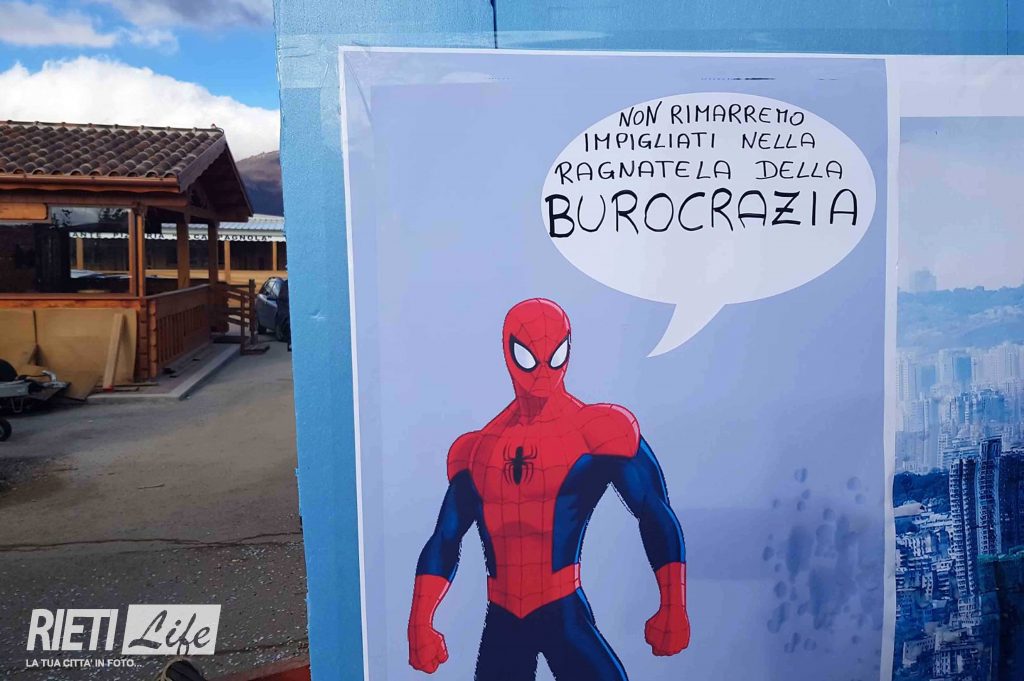 NON RIMARREMO
IMPIGLIATI NELLA
RAGNATELA DELLA
BUROCRAZIA
RIETI Life
LA TUA CITTA' IN FOTO...